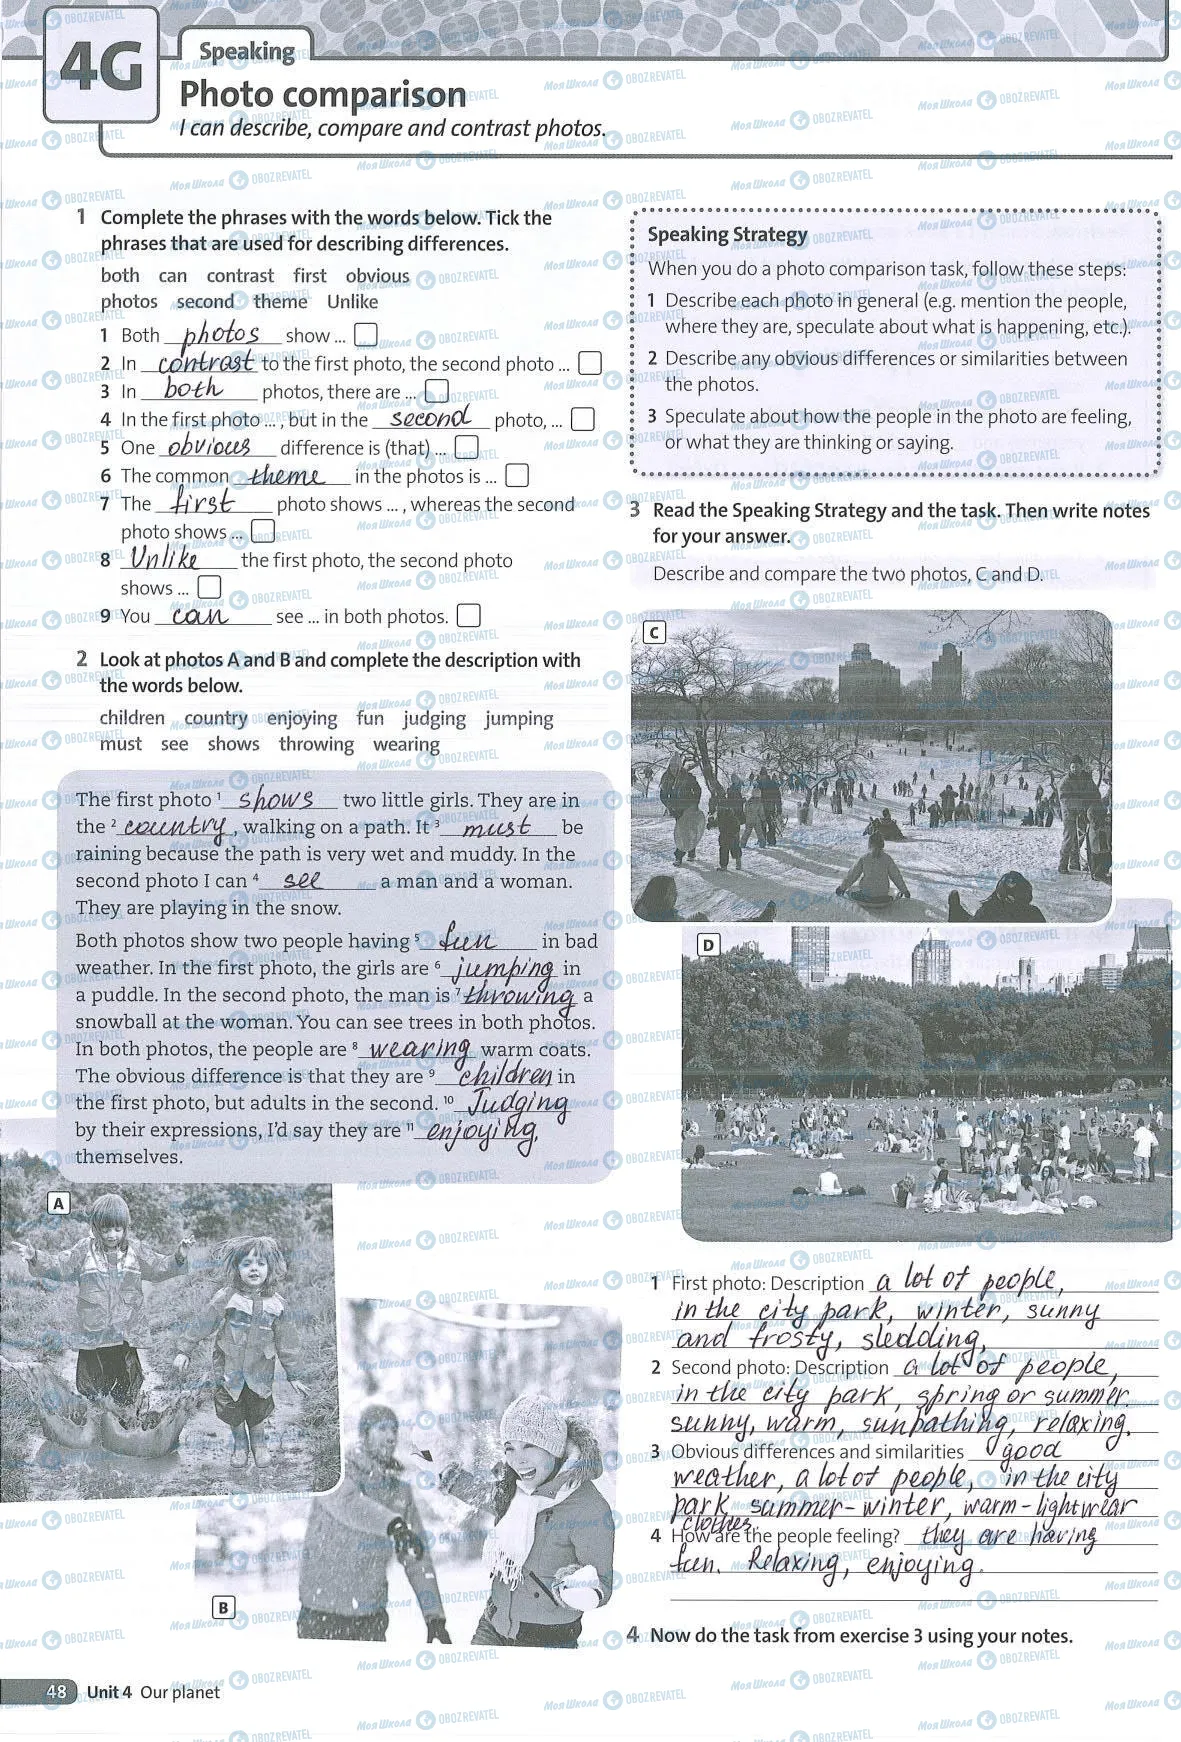 4G
Speaking
Photo comparison
I can describe, compare and contrast photos.
1 Complete the phrases with the words below. Tick the
phrases that are used for describing differences.
both can contrast first obvious
photos second theme Unlike
1 Both photos show ...
2 In contrast to the first photo, the second photo ...
3 In both photos, there are ...
4 In the first photo ... , but in the second photo, ...
5 One obvious difference is (that) ...
6 The common theme in the photos is ...
7 The first photo shows ... , whereas the second
photo shows ...
8 Unlike the first photo, the second photo
shows ...
9 You can see ... in both photos.
2 Look at photos A and B and complete the description with
the words below.
children country enjoying fun judging jumping
must see shows throwing wearing
The first photo 1 shows two little girls. They are in
the 2 country, walking on a path. It 3 must be
raining because the path is very wet and muddy. In the
second photo I can 4 see a man and a woman.
They are playing in the snow.
Both photos show two people having 5 fun in bad
weather. In the first photo, the girls are 6 jumping in
a puddle. In the second photo, the man is 7 throwing a
snowball at the woman. You can see trees in both photos.
In both photos, the people are 8 wearing warm coats.
The obvious difference is that they are 9 children in
the first photo, but adults in the second. 10 Judging
by their expressions, I'd say they are 11 enjoying,
themselves.
A
B
Speaking Strategy
When you do a photo comparison task, follow these steps:
1 Describe each photo in general (e.g. mention the people,
where they are, speculate about what is happening, etc.).
2 Describe any obvious differences or similarities between
the photos.
3 Speculate about how the people in the photo are feeling,
or what they are thinking or saying.
3 Read the Speaking Strategy and the task. Then write notes
for your answer.
Describe and compare the two photos, C and D.
C
D
1 First photo: Description a lot of people,
in the city park, winter, sunny
and frosty, sledding,
2 Second photo: Description a lot of people,
in the city park, spring or summer,
sunny, warm, sunbathing, relaxing.
3 Obvious differences and similarities good
weather, a lot of people, in the city
park, summer-winter, warm-light wear
clothes.
4 How are the people feeling? they are having
fun. Relaxing, enjoying.
4 Now do the task from exercise 3 using your notes.
48 Unit 4 Our planet
МояШкола OBOZREVATEL